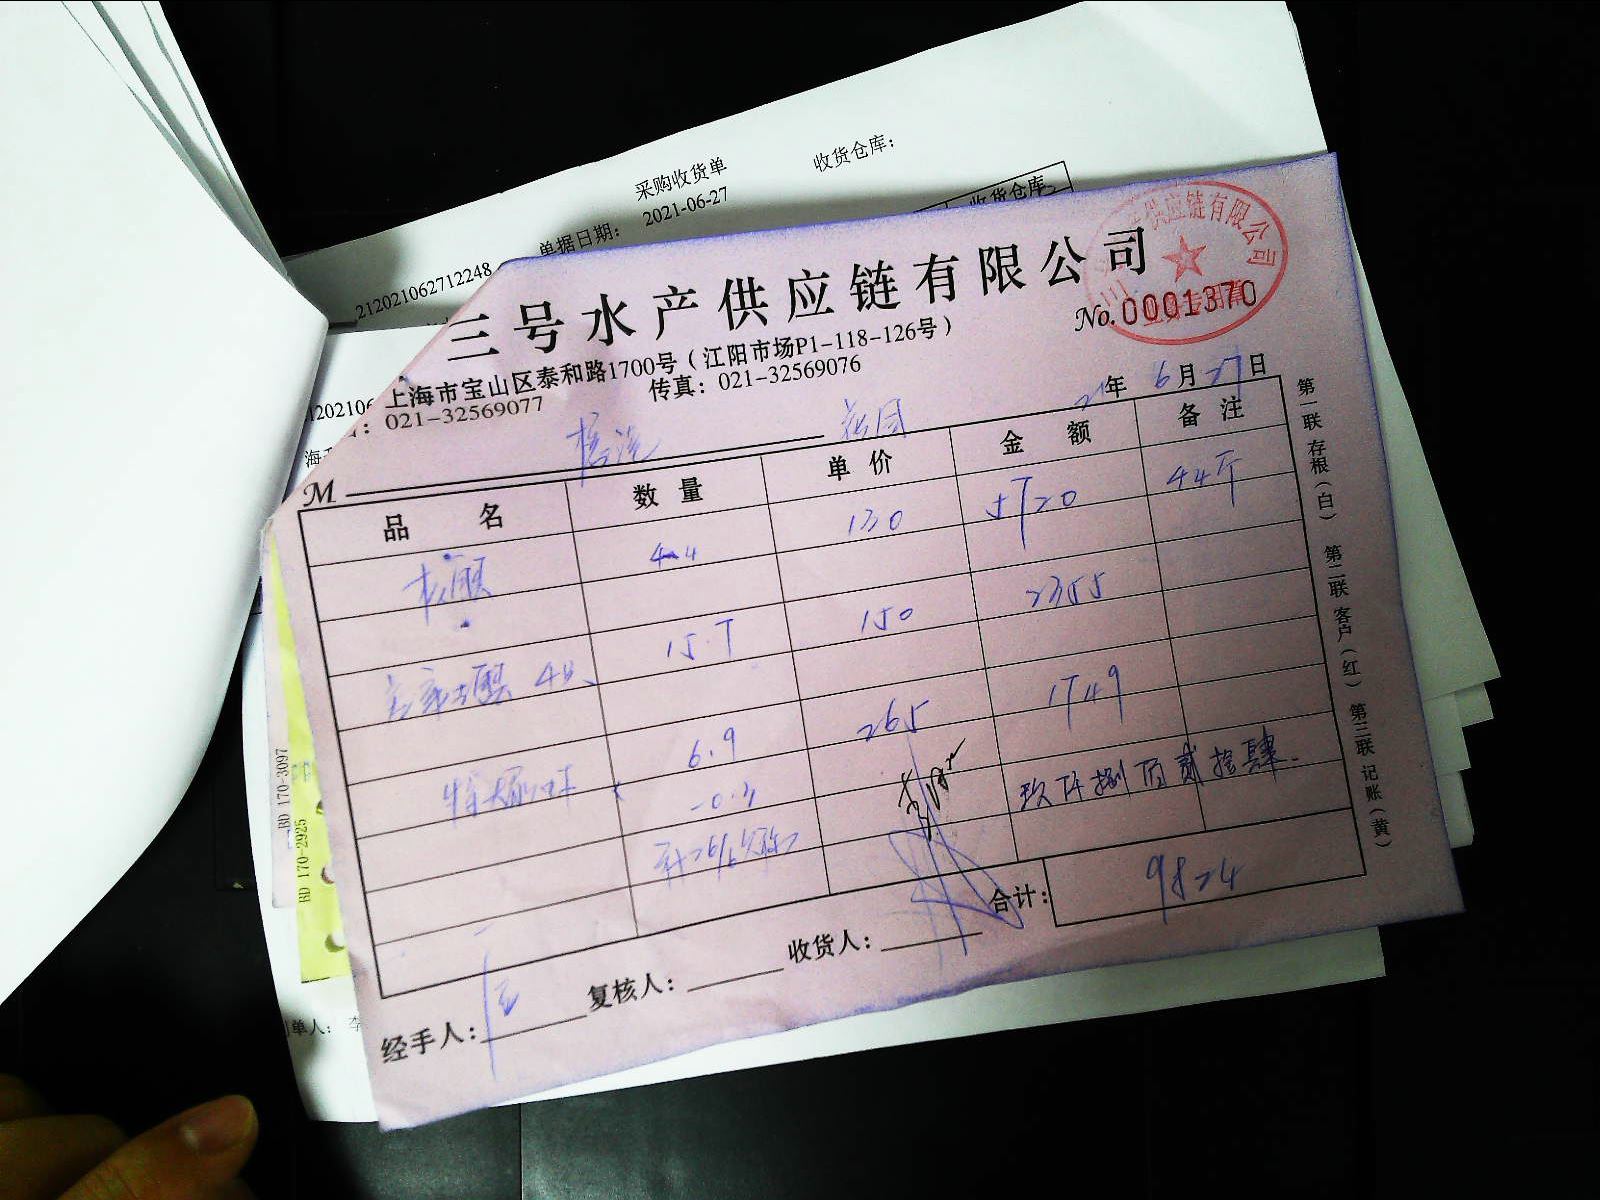 采购收货单
收货仓库：
单据日期： 2021-06-27
212021062712248
收货仓库
供应链有限公司
三号水产供应链有限公司
No.0001370
上海市宝山区泰和路1700号（江阳市场P1-118-126号）
：021-32569077 传真：021-32569076
21年 6月 27日
M
品 名 数 量 单 价 金 额 备 注
44 130 5720 44斤
15.7 150 2355
4只
6.9 265 1749
-0.3
玖仟捌佰贰拾肆
合计： 9824
经手人： 复核人： 收货人：
第一联 存根（白） 第二联 客户（红） 第三联 记账（黄）
BD 170-3097
BD 170-2925
单人： 李